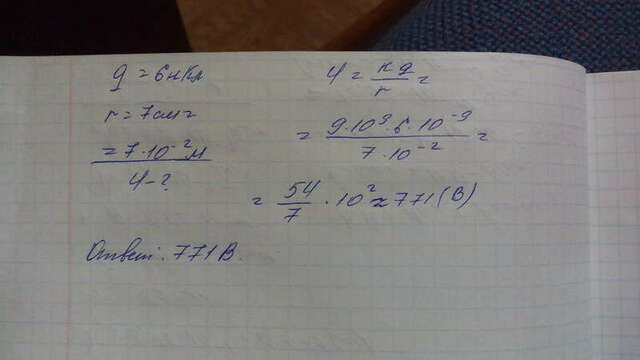 q = 6нКл
r = 7см =
= 7·10⁻² м
φ - ?
φ = kq/r =
= 9·10⁹·6·10⁻⁹/7·10⁻² =
= 54/7 · 10² ≈ 771 (В)
Ответ: 771 В.